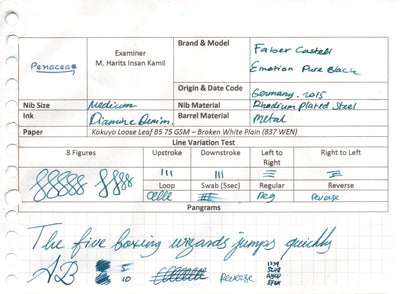 Penaceae
Examiner
M. Harits Insan Kamil
Brand & Model
Faber Castell
Emotion Pure Black
Origin & Date Code
Germany. 2015
Nib Size
Medium
Nib Material
Rhodium Plated Steel
Ink
Diamine Denim.
Barrel Material
Metal
Paper
Kokuyo Loose Leaf B5 75 GSM – Broken White Plain (837 WEN)
Line Variation Test
8 Figures
Upstroke
Downstroke
Left to Right
Right to Left
Loop
Swab (5sec)
Regular
Reverse
Reg
Reverse
Pangrams
The five boxing wizards jumps quickly
AB
5
10
Reverse